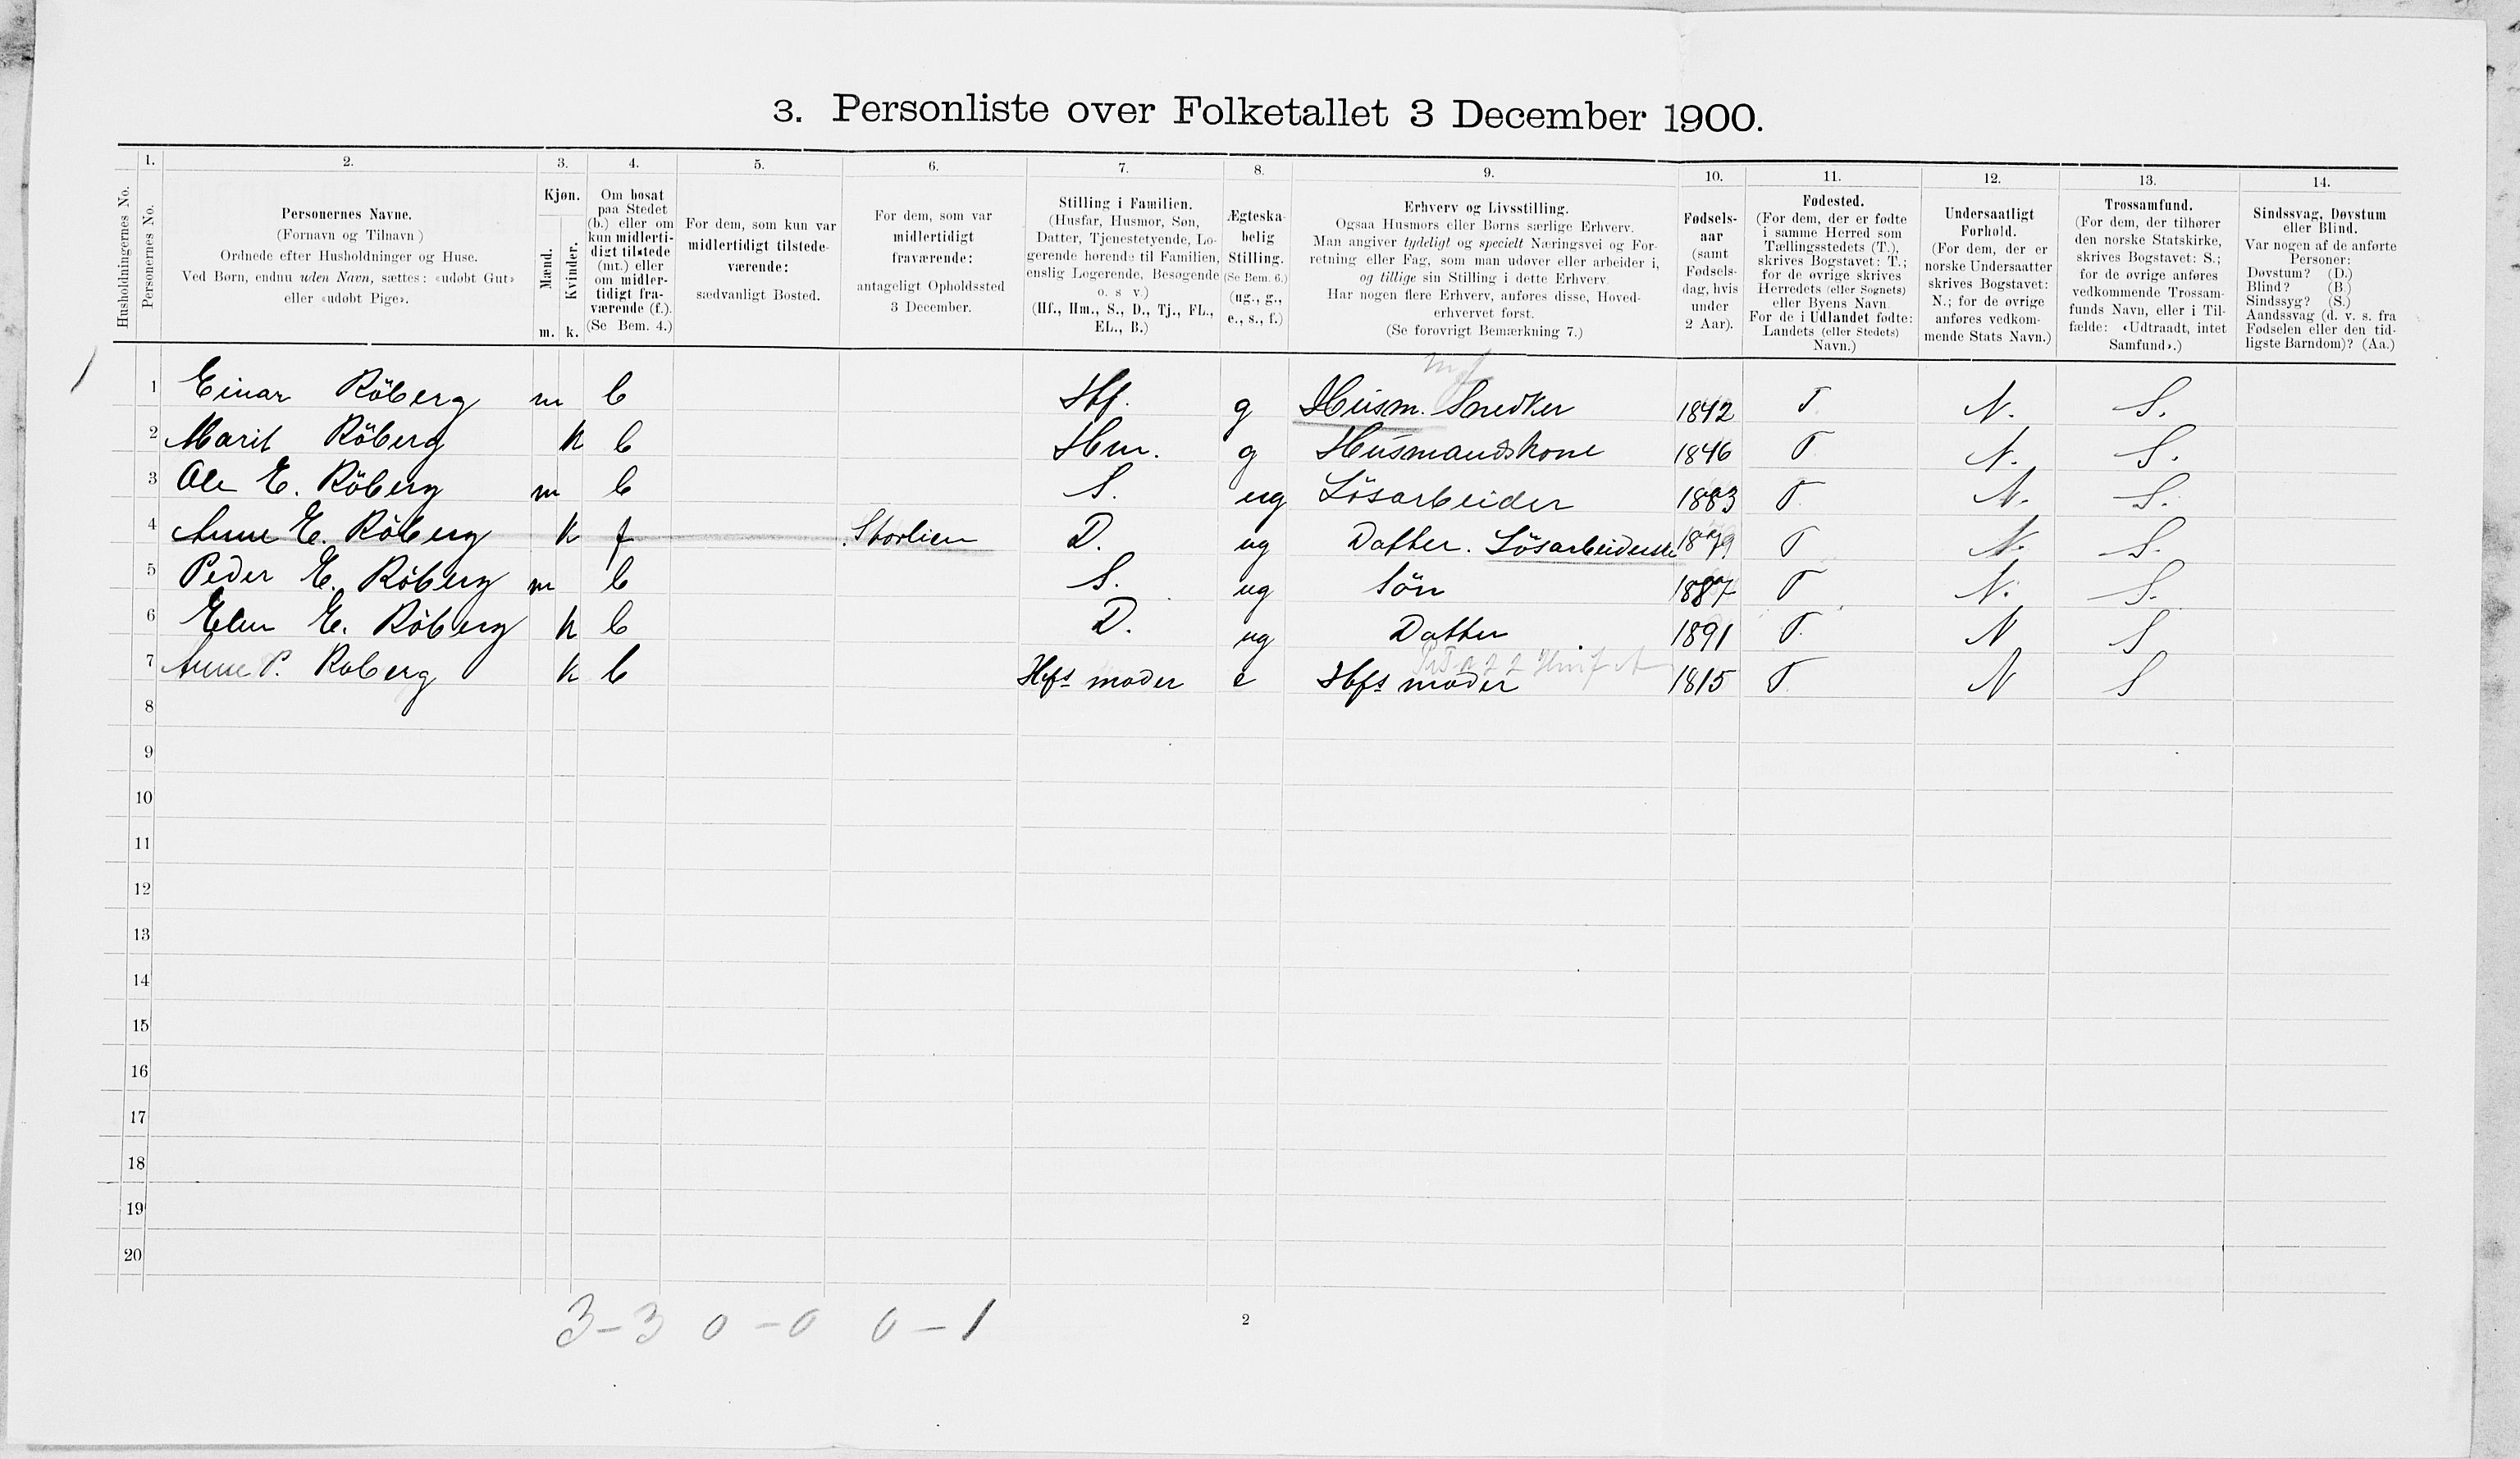 3. Personliste over Folketallet 3 December 1900.
1. 2. 3. 4. 5. 6. 7. 8. 9. 10. 11. 12. 13. 14.
Husholdningernes No.
Personernes No.
Personernes Navne.
(Fornavn og Tilnavn)
Ordnede efter Husholdninger og Huse.
Ved Børn, endnu uden Navn, sættes: «udøbt Gut»
eller «udøbt Pige».
Kjøn.
Mænd.
Kvinder.
m. k.
Om bosat
paa Stedet
(b.) eller om
kun midlerti-
digt tilstede
(mt.) eller
om midler-
tidigt fra-
værende (f.).
(Se Bem. 4.)
For dem, som kun var
midlertidigt tilstede-
værende:
sædvanligt Bosted.
For dem, som var
midlertidigt
fraværende:
antageligt Opholdssted
3 December.
Stilling i Familien.
(Husfar, Husmor, Søn,
Datter, Tjenestetyende, Lo-
gerende hørende til Familien,
enslig Logerende, Besøgende
o. s v.)
(Hf., Hm., S., D., Tj., FL.,
EL., B.)
Ægteska-
belig
Stilling.
(Se Bem. 6.)
(ug., g.,
e., s., f.)
Erhverv og Livsstilling.
Ogsaa Husmors eller Børns særlige Erhverv.
Man angiver tydeligt og specielt Næringsvei og For-
retning eller Fag, som man udøver eller arbeider i,
og tillige sin Stilling i dette Erhverv.
Har nogen flere Erhverv, anføres disse, Hoved-
erhvervet først.
(Se forøvrigt Bemærkning 7.)
Fødsels-
aar
(samt
Fødsels-
dag, hvis
under
2 Aar).
Fødested.
(For dem, der er fødte
i samme Herred som
Tællingsstedets (T.),
skrives Bogstavet: T.;
for de øvrige skrives
Herredets (eller Sognets)
eller Byens Navn.
For de i Udlandet fødte:
Landets (eller Stedets)
Navn.)
Undersaatligt
Forhold.
(For dem, der er
norske Undersaatter
skrives Bogstavet:
N.; for de øvrige
anføres vedkom-
mende Stats Navn.)
Trossamfund.
(For dem, der tilhører
den norske Statskirke,
skrives Bogstavet: S.;
for de øvrige anføres
vedkommende Trossam-
funds Navn, eller i Til-
fælde: «Udtraadt, intet
Samfund».)
Sindssvag, Døvstum
eller Blind.
Var nogen af de anførte
Personer:
Døvstum? (D.)
Blind? (B.)
Sindssyg? (S.)
Aandssvag (d. v. s. fra
Fødselen eller den tid-
ligste Barndom)? (Aa.)
1 Einar Röberg m b Hf. g Husm. Snedker 1842 T. N. S.
2 Marit Röberg k b Hm. g Husmandskone 1846 T N. S.
3 Ole E. Röberg m b S. ug Lösarbeider 1883 T. N. S.
4 Anne E. Röberg k f Storlien D. ug Datter. Lösarbeiderske 1879 T N. S.
5 Peder E. Röberg m b S. ug Sön 1887 T N. S.
6 Elen E. Röberg k b D. ug Datter 1891 T. N S
7 Anne P. Roberg k b Hfs moder e Hfs moder 1815 T N S
8
9
10
11
12
13
14
15
16
17
18
19
20
3-3 0-0 0-1
2